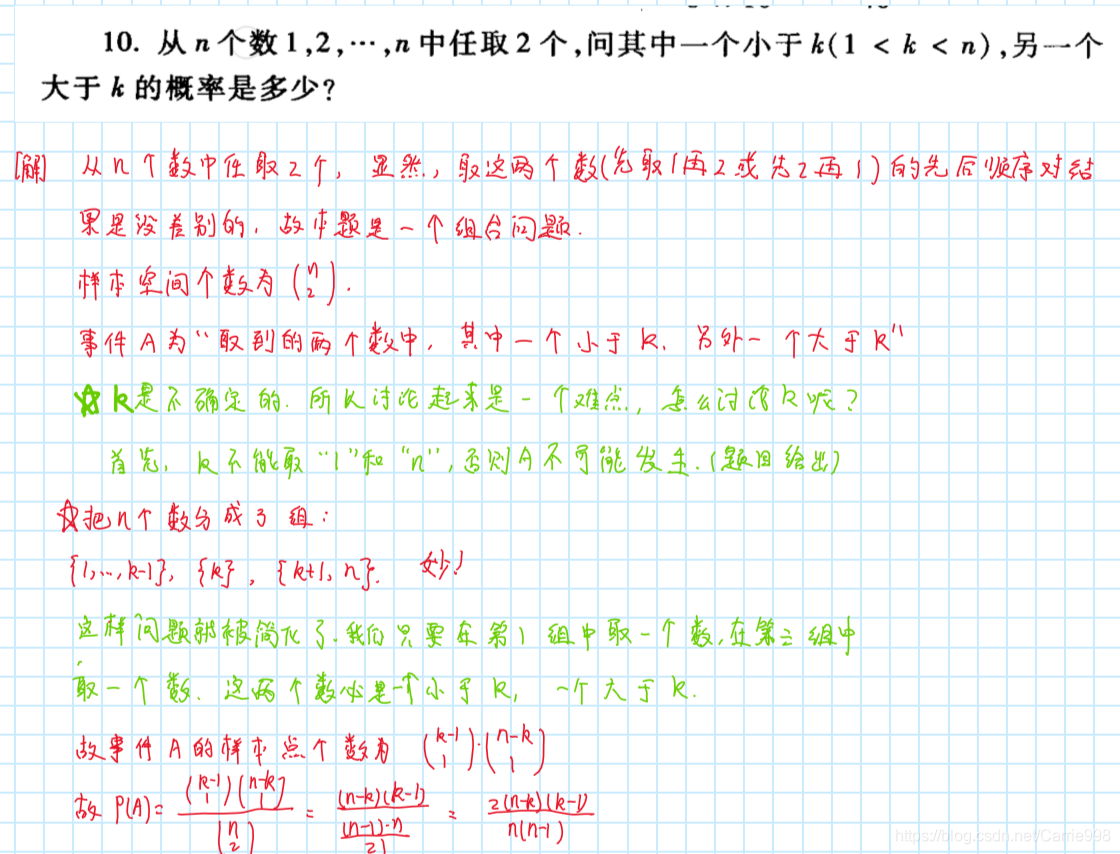 10. 从 n 个数 1,2,⋯,n 中任取 2 个,问其中一个小于 k(1 < k < n),另一个
大于 k 的概率是多少?
[解] 从 n 个数中任取 2 个, 显然, 取这两个数(先取1再2或先2再1)的先后顺序对结
果是没差别的, 故本题是一个组合问题.
样本空间个数为 (n 2).
事件 A 为“取到的两个数中, 其中一个小于 k, 另外一个大于 k"
☆ k是不确定的. 所以讨论起来是一个难点, 怎么讨论 k 呢?
首先, k 不能取 “1”和 “n”, 否则 A 不可能发生. (题目给出)
☆把 n 个数分成 3 组:
{1,..., k-1}, {k}, {k+1, n}. 妙!
这样问题就被简化了. 我们只要在第 1 组中取一个数, 在第三组中
取一个数. 这两个数必是一个小于 k, 一个大于 k.
故事件 A 的样本点个数为 (k-1 1)·(n-k 1)
故 P(A)= (k-1 1)(n-k 1) / (n 2) = (n-k)(k-1) / ((n-1)·n / 2!) = 2(n-k)(k-1) / n(n-1)
https://blog.csdn.net/Carrie998